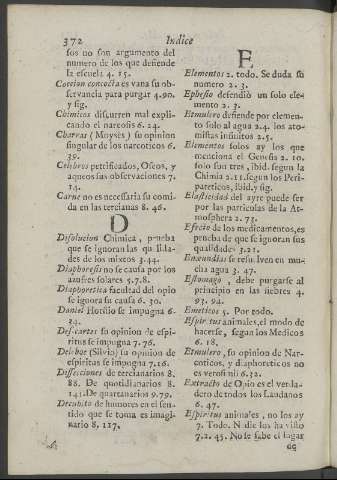 372
Indice
sos no son argumento del
numero de los que defiende
la escuela 4. 15.
Coccion concocta es vana su ob-
servancia para purgar 4.90.
y sig.
Chimicos discurren mal expli-
cando el narcosis 6. 24.
Charras (Moysès) su opinion
singular de los narcoticos 6.
39.
Celebros petrificados, Oseos, y
aqueos sus observaciones 7.
14.
Carne no es necessaria su comi-
da en las tercianas 8. 46.
D
Disolucion Chimica, prueba
que se ignoran las qualida-
des de los mixtos 3.44.
Diaphoresis no se causa por los
azufres solares 5.7.8.
Diaphoretica facultad del opio
se ignora su causa 6. 30.
Daniel Horstio se impugna 6.
34.
Des-cartes su opinion de espi-
ritus se impugna 7. 76.
Deleboe (Silvio) su opinion de
espiritus se impugna 7.16.
Disseciones de tercianarios 8.
88. De quotidianarios 8.
141. De quartanarios 9.79.
Decubito de humores en el sen-
tido que se toma es imagi-
nario 8. 117.
E
Elementos 2. todo. Se duda su
numero 2. 3.
Ephesio defendiò un solo ele-
mento 2. 3.
Etmulero defiende por elemen-
to solo al agua 2.4. los ato-
mistas insuitos 2.5.
Elementos solos ay los que
menciona el Genesis 2. 10.
solo son tres, ibid. segun la
Chimia 2.11. segun los Peri-
pateticos, ibid. y sig.
Elasticidad del ayre puede ser
por las particulas de la At-
mosphera 2. 73.
Efecto de los medicamentos, es
prueba de que se ignoran sus
qualidades 3.21.
Enxundias se resuelven en mu-
cha agua 3. 47.
Estomago, debe purgarse al
principio en las fiebres 4.
93. 94.
Emeticos 5. Por todo.
Espiritus animales, el modo de
hacerse, segun los Medicos
6. 18.
Etmulero, su opinion de Nar-
coticos, y diaphoreticos no
es verosimil 6. 32.
Extracto de Opio es el verda-
dero de todos los Laudanos
6. 47.
Espiritus animales, no los ay
7. Todo. N die los ha visto
7.2. 45. No se sabe el lugar